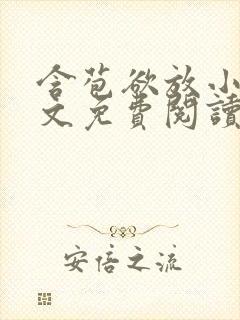 含苞欲放小
文免費閱讀
安倍之流